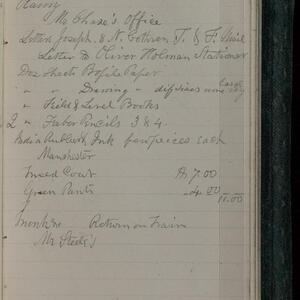 Mr Chase's Office
Letters Joseph. & N. Cothren T. & F.
Letter to Oliver Holman Stationer
Doz Sheets Profile Paper
" " Drawing - different
" Field & Level Books
2 " Faber Pencils 3 & 4.
India Rubber & Ink few pieces each
Manchester
Tweed Coat 7.00
Green Pants 4.00
11.00
Return on Train
Mr Steele's